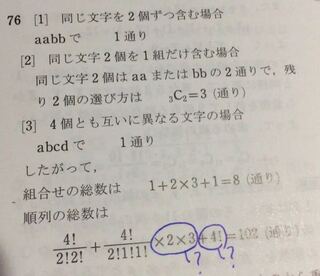 76 [1] 同じ文字を2個ずつ含む場合
aabbで 1通り
[2] 同じ文字2個を1組だけ含む場合
同じ文字2個はaaまたはbbの2通りで，残
り2個の選び方は ₃C₂=3（通り）
[3] 4個とも互いに異なる文字の場合
abcdで 1通り
したがって，
組合せの総数は 1+2×3+1=8（通り）
順列の総数は
4!/2!2! + 4!/2!1!1! ×2×3+4!=102（通り）
? ?